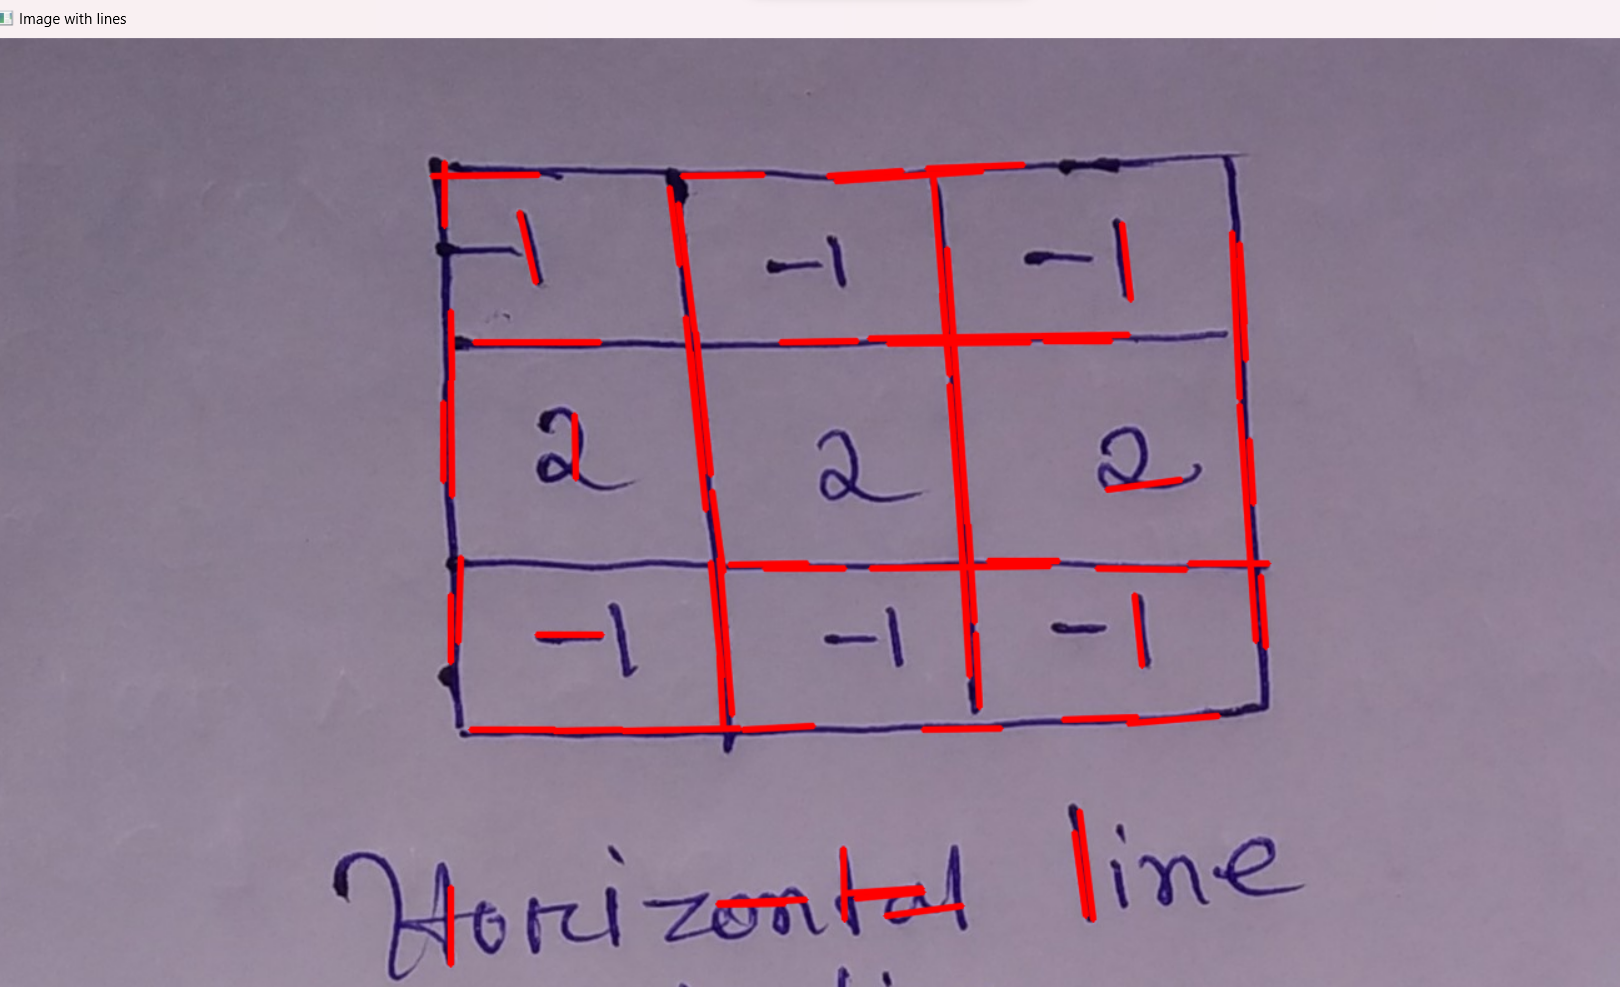 Image with lines
-1 -1 -1
2 2 2
-1 -1 -1
Horizontal line